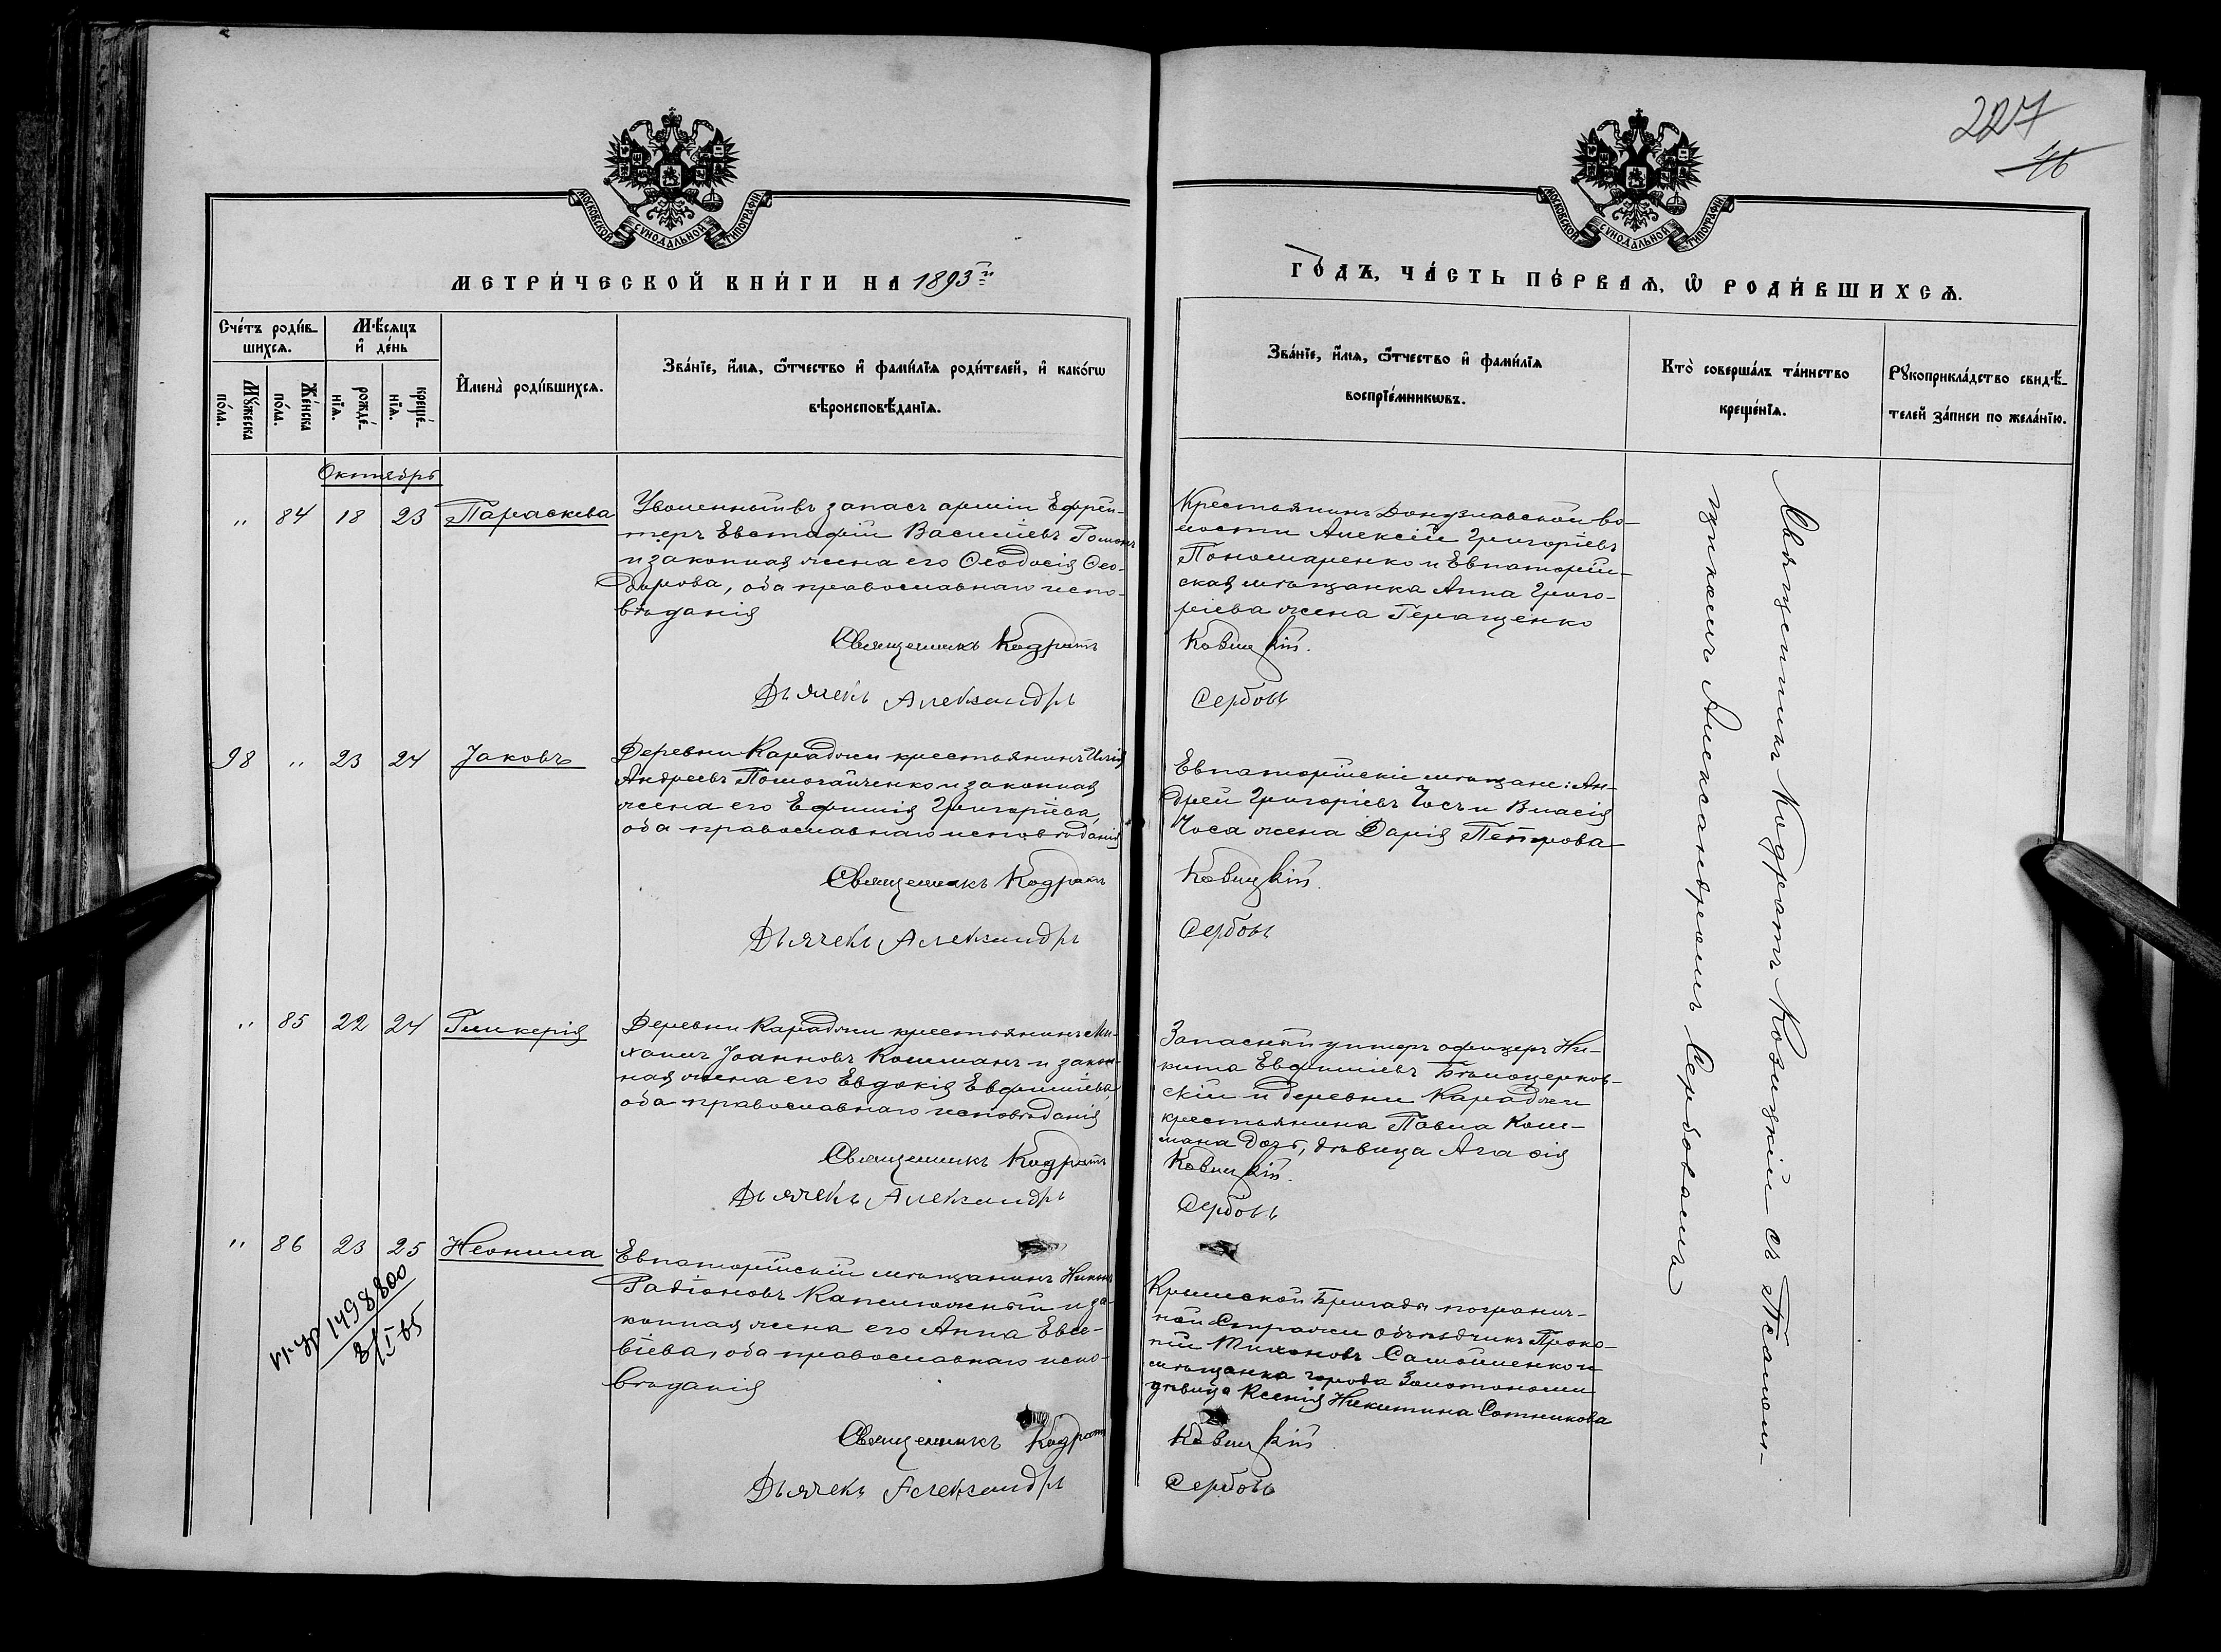 227
46
МОСКОВСКОЙ СѴНОДАЛЬНОЙ ТИПОГРАФІИ
МОСКОВСКОЙ СѴНОДАЛЬНОЙ ТИПОГРАФІИ
МЕТРИ́ЧЕСКОЙ КНИ́ГИ НА 1893й
ГО́ДЪ, ЧА́СТЬ ПЕ́РВАѦ, Ѡ҆ РОДИ́ВШИХСѦ.
Сче́тъ роди́в-
шихсѧ.
Мꙋ́жеска
по́ла.
Же́нска
по́ла.
Мѣ́сѧцъ
и҆ де́нь
рожде́-
нїѧ.
креще́-
нїѧ.
И҆мена̀ роди́вшихсѧ.
Зва́нїе, и҆́мѧ, ѻ҆́тчество и҆ фами́лїѧ роди́телей, и҆ како́гѡ
вѣроисповѣ́данїѧ.
Зва́нїе, и҆́мѧ, ѻ҆́тчество и҆ фами́лїѧ
воспрїе́мникѡвъ.
Кто̀ соверша́лъ та́инство
креще́нїѧ.
Рꙋкоприкла́дство свидѣ́-
телей за́писи по жела́нїю.
Октябрь
" 84 18 23 Параскева
Уволенный въ запасъ арміи Ефрей-
торъ Евстафій Васильевъ
и законная жена его Ѳеодосія Ѳео-
дорова, оба православнаго испо-
вѣданія
Священникъ Кодратъ
Дьячекъ Александръ
Крестьянинъ Донузлавской во-
лости Алексій Григоріевъ
Пономаренко и Евпаторій-
ская мѣщанка Анна Григо-
ріева жена Геращенко
Козицкій.
Сербовъ
98 " 23 24 Іаковъ
Деревни Караджи крестьянинъ Илія
Андреевъ Помогайченко и законная
жена его Ефимія Григоріева,
оба православнаго исповѣданія
Священникъ Кодратъ
Дьячекъ Александръ
Евпаторійскіе мѣщане: Ан-
дрей Григоріевъ Чосъ и Власія
Чоса жена Дарія Петрова
Козицкій.
Сербовъ
" 85 22 24 Гликерія
Деревни Караджи крестьянинъ Ми-
хаилъ Іоанновъ Кошманъ и закон-
ная жена его Евдокія Евфиміева,
оба православнаго исповѣданія
Священникъ Кодратъ
Дьячекъ Александръ
Запасный унтеръ офицеръ Ни-
кита Евфиміевъ Бѣлоцерков-
скій и деревни Караджи
крестьянина Павла Кош-
мана дочь, дѣвица Агафія
Козицкій.
Сербовъ
" 86 23 25 Неонила
Евпаторійскій мѣщанинъ Никонъ
Радіоновъ Капелюжный и за-
конная жена его Анна Евсе-
віева, оба православнаго испо-
вѣданія
Священникъ Кодратъ
Дьячекъ Александръ
Крымской Бригады погранич-
ной Стражи объѣздчикъ Проко-
пій Тихоновъ Самойленко и
мѣщанка города Золотоноши
дѣвица Ксенія Никитина Сотникова
Козицкій
Сербовъ
1498800
8/I 65
Священникъ Кодратъ Козицкій съ Псалом-
щикомъ Александромъ Сербовымъ